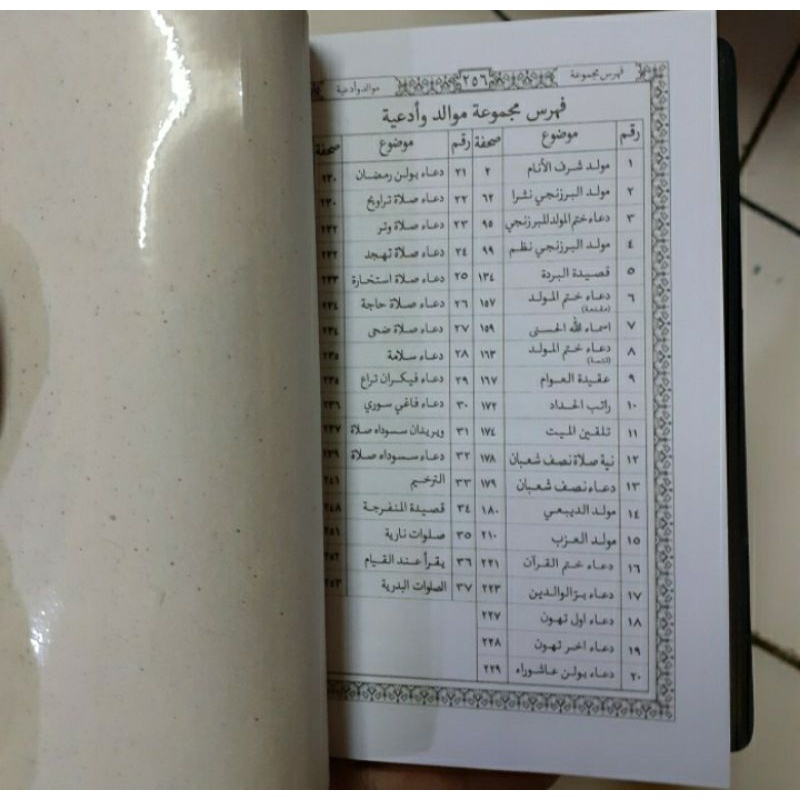 فهرس مجموعة ٢٥٦ موالد وأدعية
فهرس مجموعة موالد وأدعية
رقم موضوع صحفة
١ مولد شرف الأنام ٢
٢ مولد البرزنجي نثرا ٦٢
٣ دعاء ختم المولد للبرزنجي ٩٥
٤ مولد البرزنجي نظم ٩٩
٥ قصيدة البردة ١٣٤
٦ دعاء ختم المولد ١٥٧
٧ اسماء الله الحسنى ١٥٩
٨ دعاء ختم المولد ١٦٣
٩ عقيدة العوام ١٦٧
١٠ راتب الحداد ١٧٢
١١ تلقين الميت ١٧٤
١٢ نية صلاة نصف شعبان ١٧٨
١٣ دعاء نصف شعبان ١٧٩
١٤ مولد الديبعي ١٨٠
١٥ مولد العزب ٢١٠
١٦ دعاء ختم القرآن ٢٢١
١٧ دعاء برّ الوالدين ٢٢٣
١٨ دعاء اول تهون ٢٢٧
١٩ دعاء اخر تهون ٢٢٨
٢٠ دعاء بولن عاشوراء ٢٢٩
رقم موضوع صحفة
٢١ دعاء بولن رمضان ٢٣٠
٢٢ دعاء صلاة تراويح ٢٣٠
٢٣ دعاء صلاة وتر ٢٣٢
٢٤ دعاء صلاة تهجد ٢٣٢
٢٥ دعاء صلاة استخارة ٢٣٣
٢٦ دعاء صلاة حاجة ٢٣٤
٢٧ دعاء صلاة ضحى ٢٣٤
٢٨ دعاء سلامة ٢٣٥
٢٩ دعاء فيكران تراغ ٢٣٥
٣٠ دعاء فاغي سوري ٢٣٦
٣١ ويريدان سسوداه صلاة ٢٣٧
٣٢ دعاء سسوداه صلاة ٢٣٩
٣٣ الترخيم ٢٤١
٣٤ قصيدة المنفرجة ٢٤٨
٣٥ صلوات نارية ٢٥١
٣٦ يقرأ عند القيام ٢٥٢
٣٧ الصلوات البدرية ٢٥٣